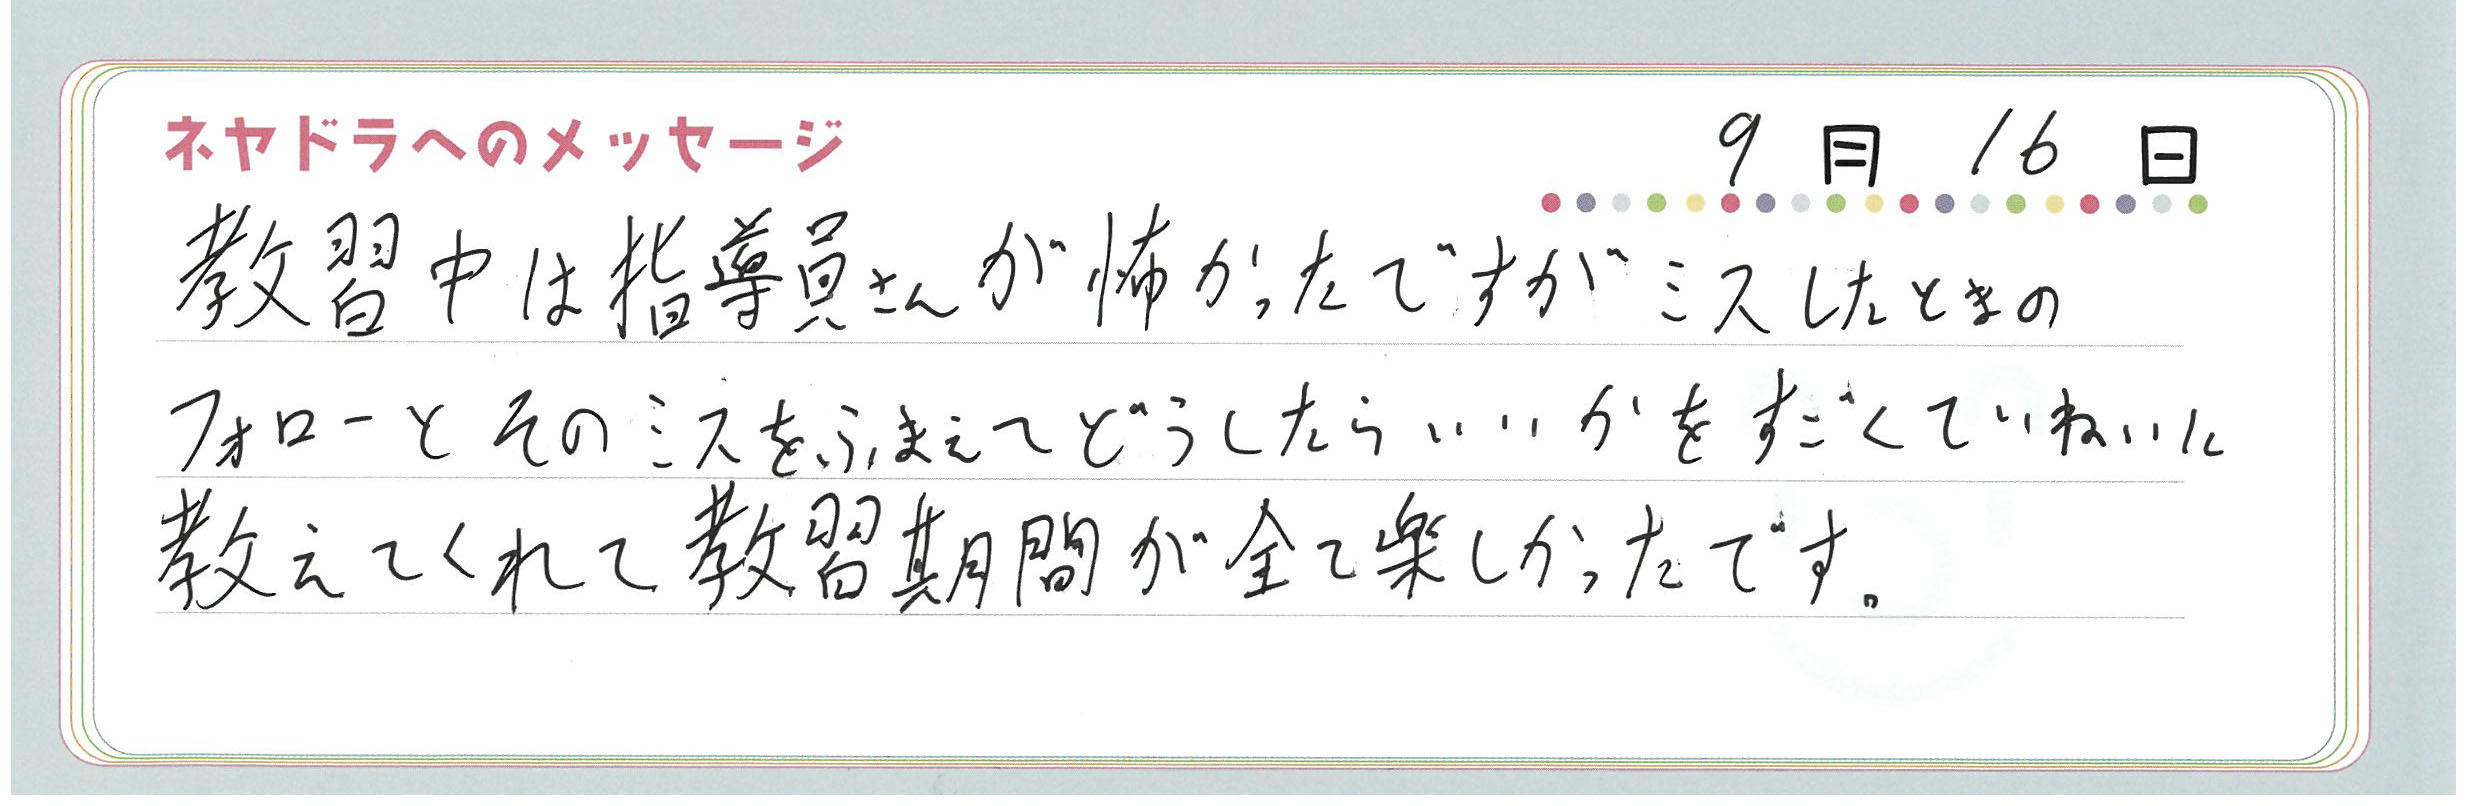 ネヤドラへのメッセージ
9月16日
教習中は指導員さんが怖かったですがミスしたときの
フォローとそのミスをふまえてどうしたらいいかをすごくていねいに
教えてくれて教習期間が全て楽しかったです。